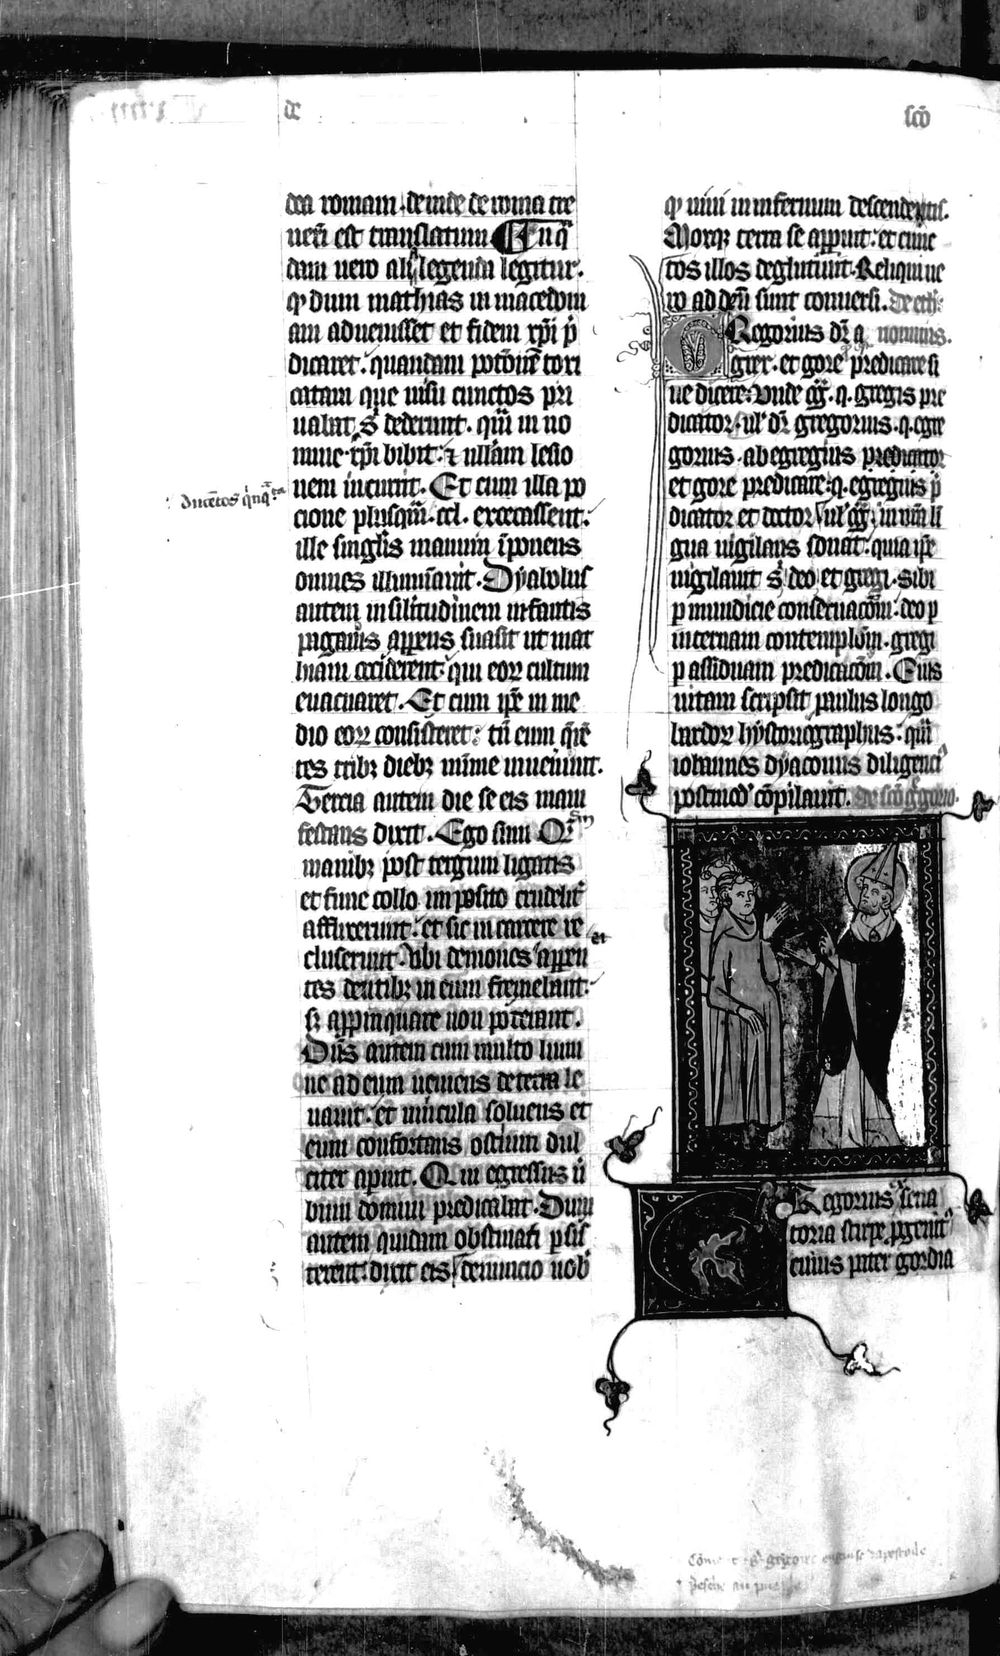 de
scō
dea romam . deinde de roma tre
uerī est translatum ¶ In qͣ
dam uero alīͣ legenda legitur .
ꝙ dum mathias in macedoni
am aduenisset et fidem xp̄i p̄
dicaret . quandam potōnē toxi
catam que uisu cunctos pri
uabat s; dederunt . quā in no
mine xp̄i bibit . ⁊ ullam lesio
nem incurrit . Et cum illa po
ducētos q̇nqͣ.ta
cione plusqͣ̄ . ccl . excecassent .
ille singl̄is manum īponens
omnes illumīauit . Dyabolus
autem in sil̄itudinem infantis
paganis apparens suasit ut mat
hiam occiderent qui eoꝝ cultum
euacuaret . Et cum ip̄e in me
dio eoꝝ consisteret . tn̄ eum q̄rē
tes tribꝫ diebꝫ mīme inuenīnt .
Tercia autem die se eis mani
festans dixit . Ego sum Qi
manibꝫ post tergum ligatis
et fune collo imposito crudelit̾
afflixerunt . et sic in carcere re
cluserunt . Vbi demones appen
tes dentibꝫ in eum fremebant .
sꝫ app̄inquare non poterant .
Dn̄s autem cum multo lumi
ne ad eum ueniens de terra le
uauit . et uincula soluens et
eum confortans ostium dul
citer aperuit . Qui egressus ū
bum domini predicabat . Dum
autem quidam obstinati ꝑsis
terent . dixit eis denuncio uob̾
ꝙ uiui in infernum descendetis .
Moxqꝫ terra se apperuit . et cunc
tos illos deglutiuit . Reliqui ue
ro ad deū sunt conuersi . De eth .
Gregorius dr̄ a nominis .
grex . et gore predicare si
ue dicere . Vnde gḡ . q . gregis pre
dicator . ul̾ dr̄ gregorius . q . egre
gorius . ab egregius predicator
et gore predicare . q . egregius p̄
dicator et doctor ul̾ gḡ ; in nr̄a li
gua uigilans sonat . quia ip̄e
uigilauit s; deo et gregi . Sibi
ꝑ mundicie conseruacōm . deo ꝑ
internam contemplōm . gregi
ꝑ assiduam predicacōm . Eius
uitam scripsit paulus longo
bardoꝝ hystoriographus . quā
iohannes dyaconus diligenci̾
postmod̾ cōpilauit . de scō gͤgorio .
Gregorius sena
toria stirpe ꝓgenit̾
cuius pater gordia